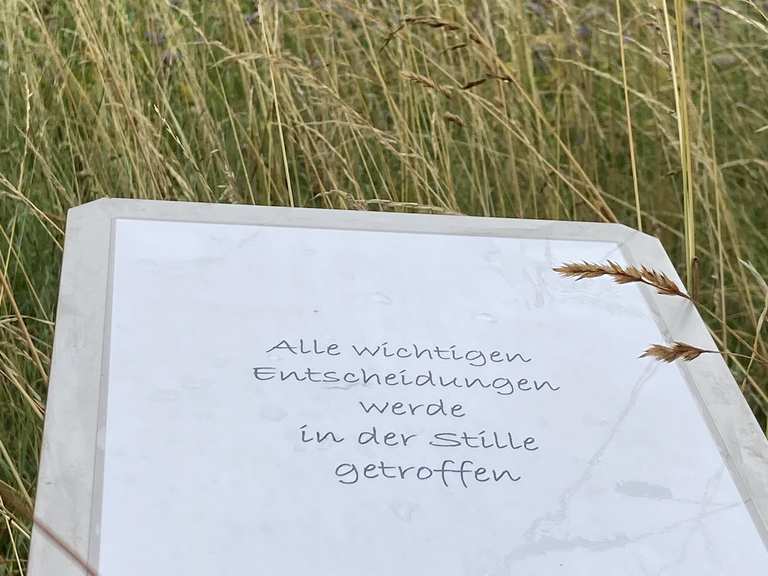 Alle wichtigen
Entscheidungen
werde
in der Stille
getroffen